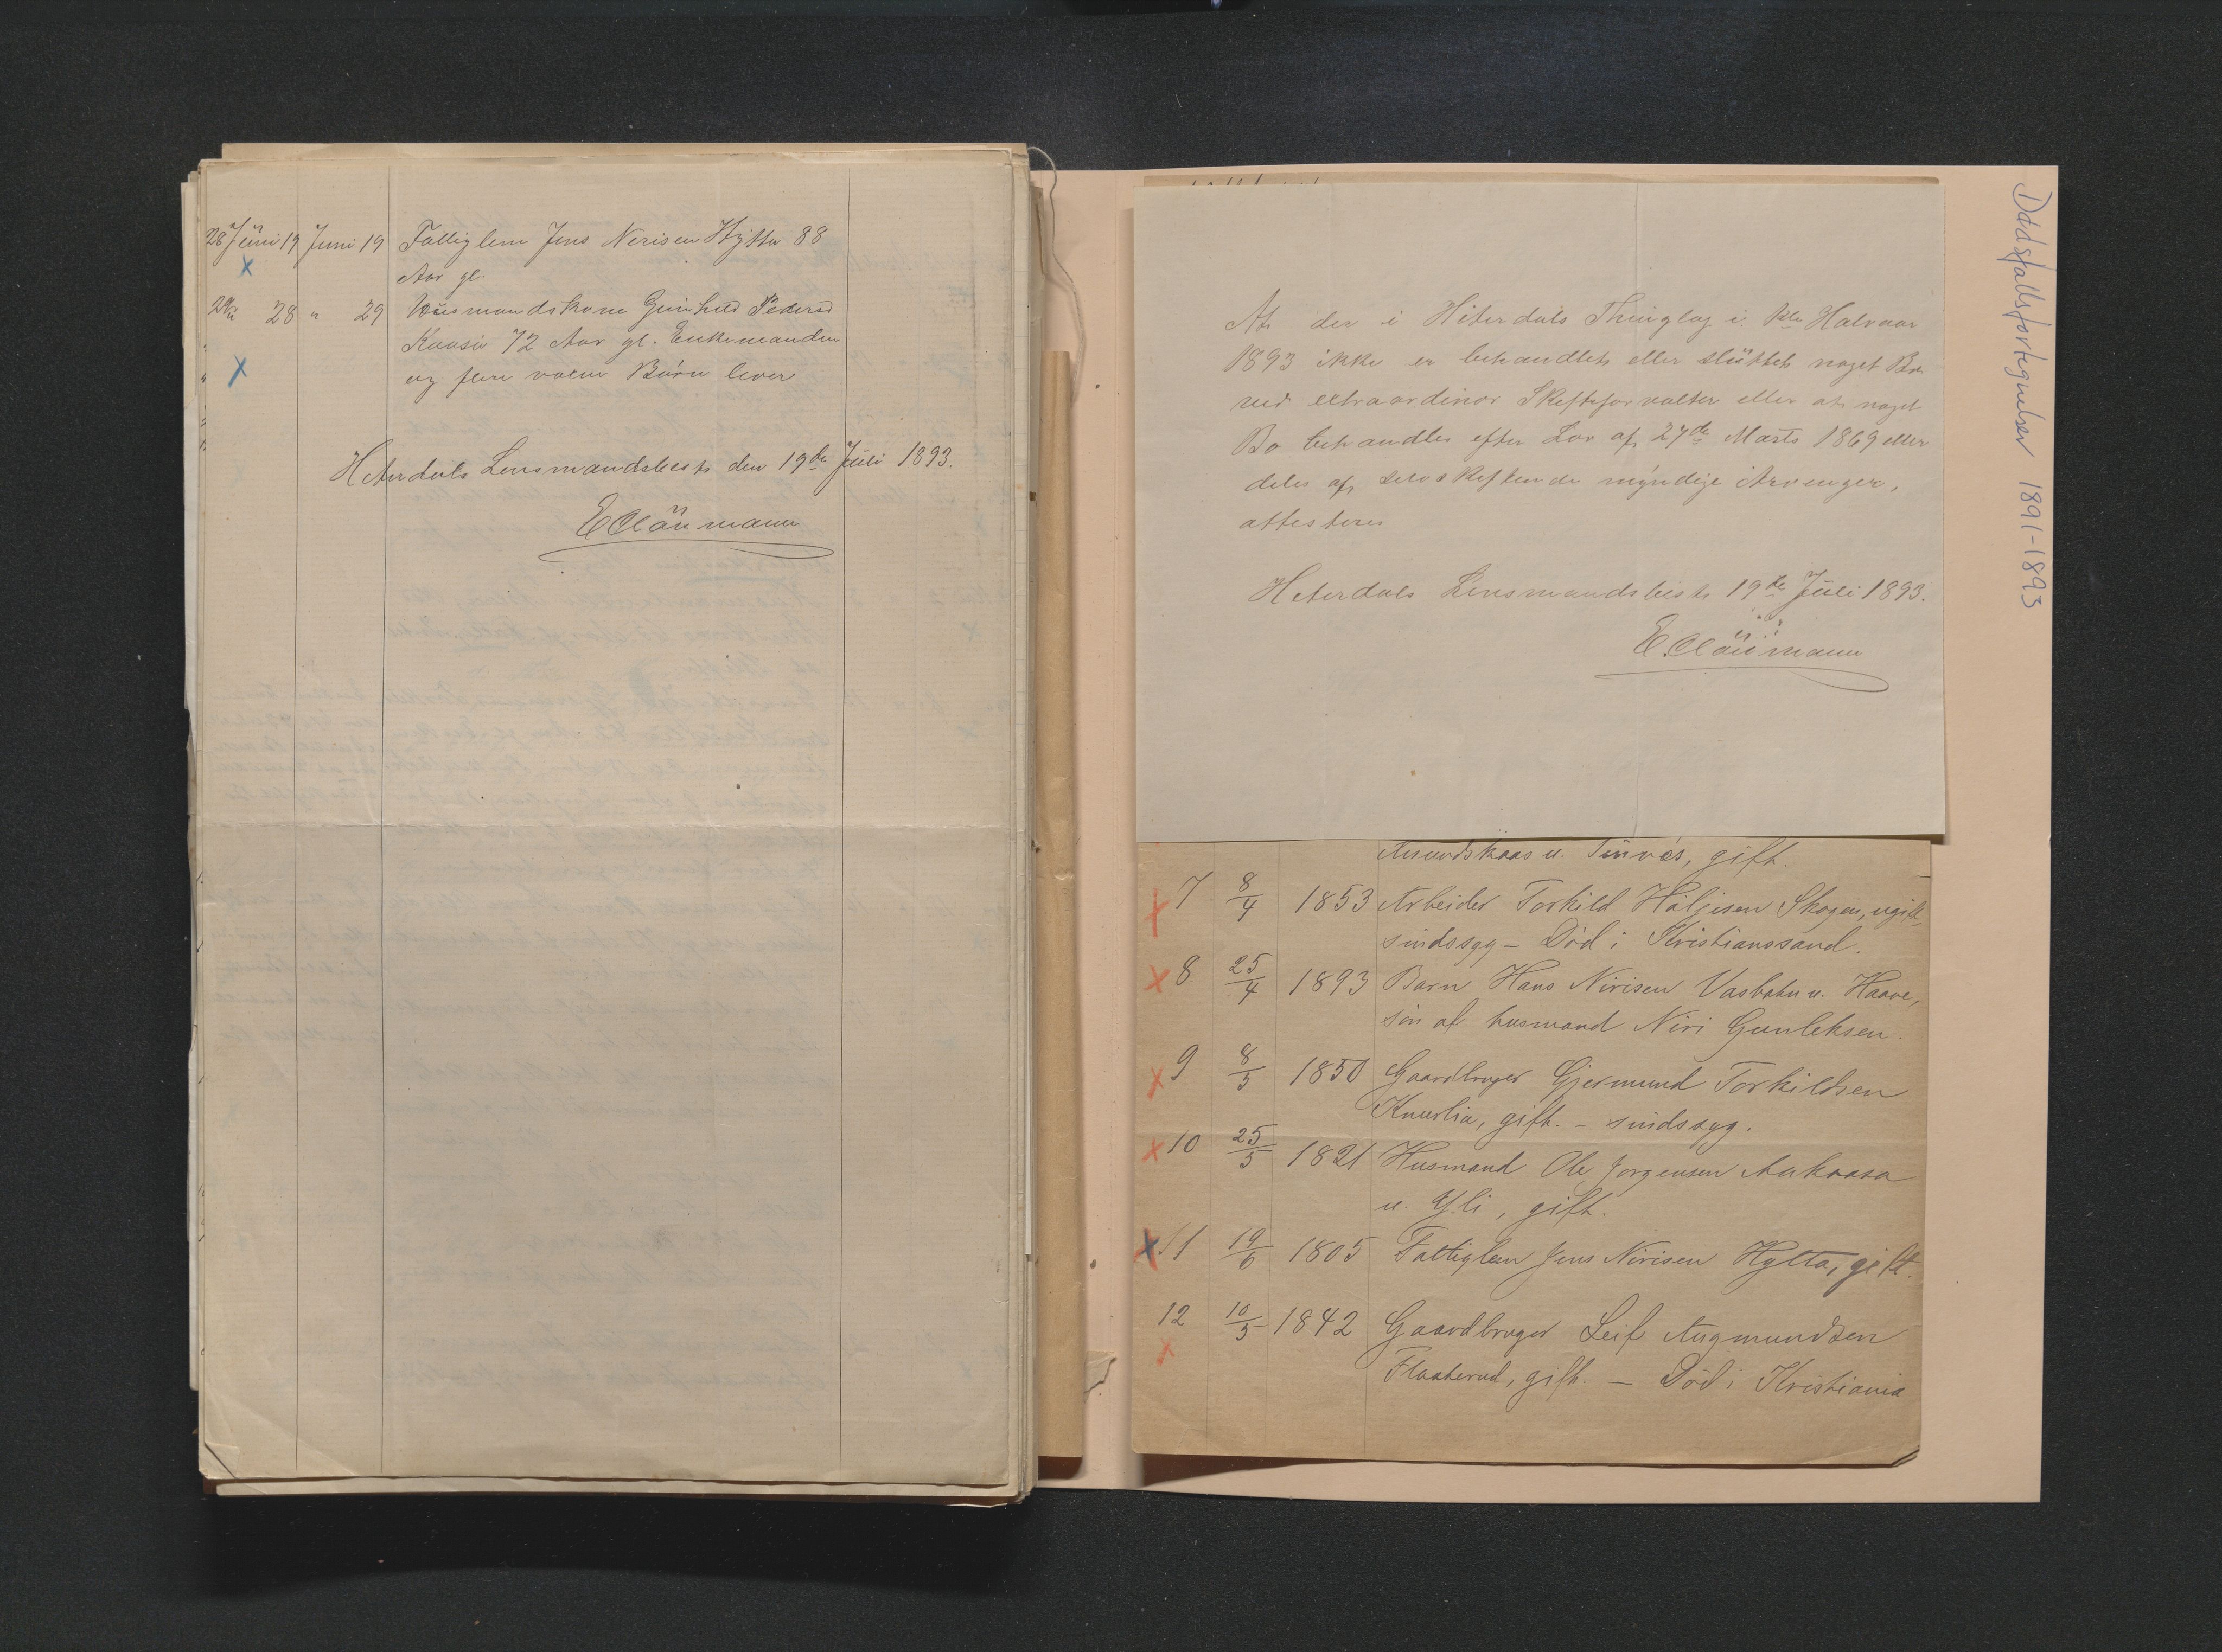 28 Juni 19 Juni 19 Fattiglem Jens Nerisen Hytta 88
Aar gl.
28 " 29 Husmandskone Gunhild Pedersd
Kaasa 72 Aar gl. Enkemanden
og flere voxne Børn lever
Hiterdals Lensmandsbest. den 19de Juli 1893.
E Claümann
At der i Hiterdals Thinglag i 1ste Halvaar
1893 ikke er behandlet eller sluttet noget Bo
ved extraordinær Skifteforvalter eller at noget
Bo behandles efter Lov af 27de Marts 1869 eller
deles af selvskiftende myndige Arvinger,
attesteres
Hiterdals Lensmandsbest. 19de Juli 1893.
E. Claümann
Amundskaas u. Tinnes, gift.
7 8/4 1853 Arbeider Torkild Høljesen Skogen, ugift,
sindssyg – Død i Kristianssand.
8 25/4 1893 Barn Hans Nirisen Vasbotn u. Haave,
søn af husmand Niri Gunleksen.
9 8/5 1850 Gaardbruger Gjermund Torkildsen
gift. – sindssyg.
10 25/5 1821 Husmand Ole Jørgensen Aakaasa
u. Yli, gift.
11 19/6 1805 Fattiglem Jens Nirisen Hytta, gift.
12 10/5 1842 Gaardbruger Leif Augmundsen
Flaaterud, gift. – Død i Kristiania
Dødsfallsfortegnelser 1891-1893